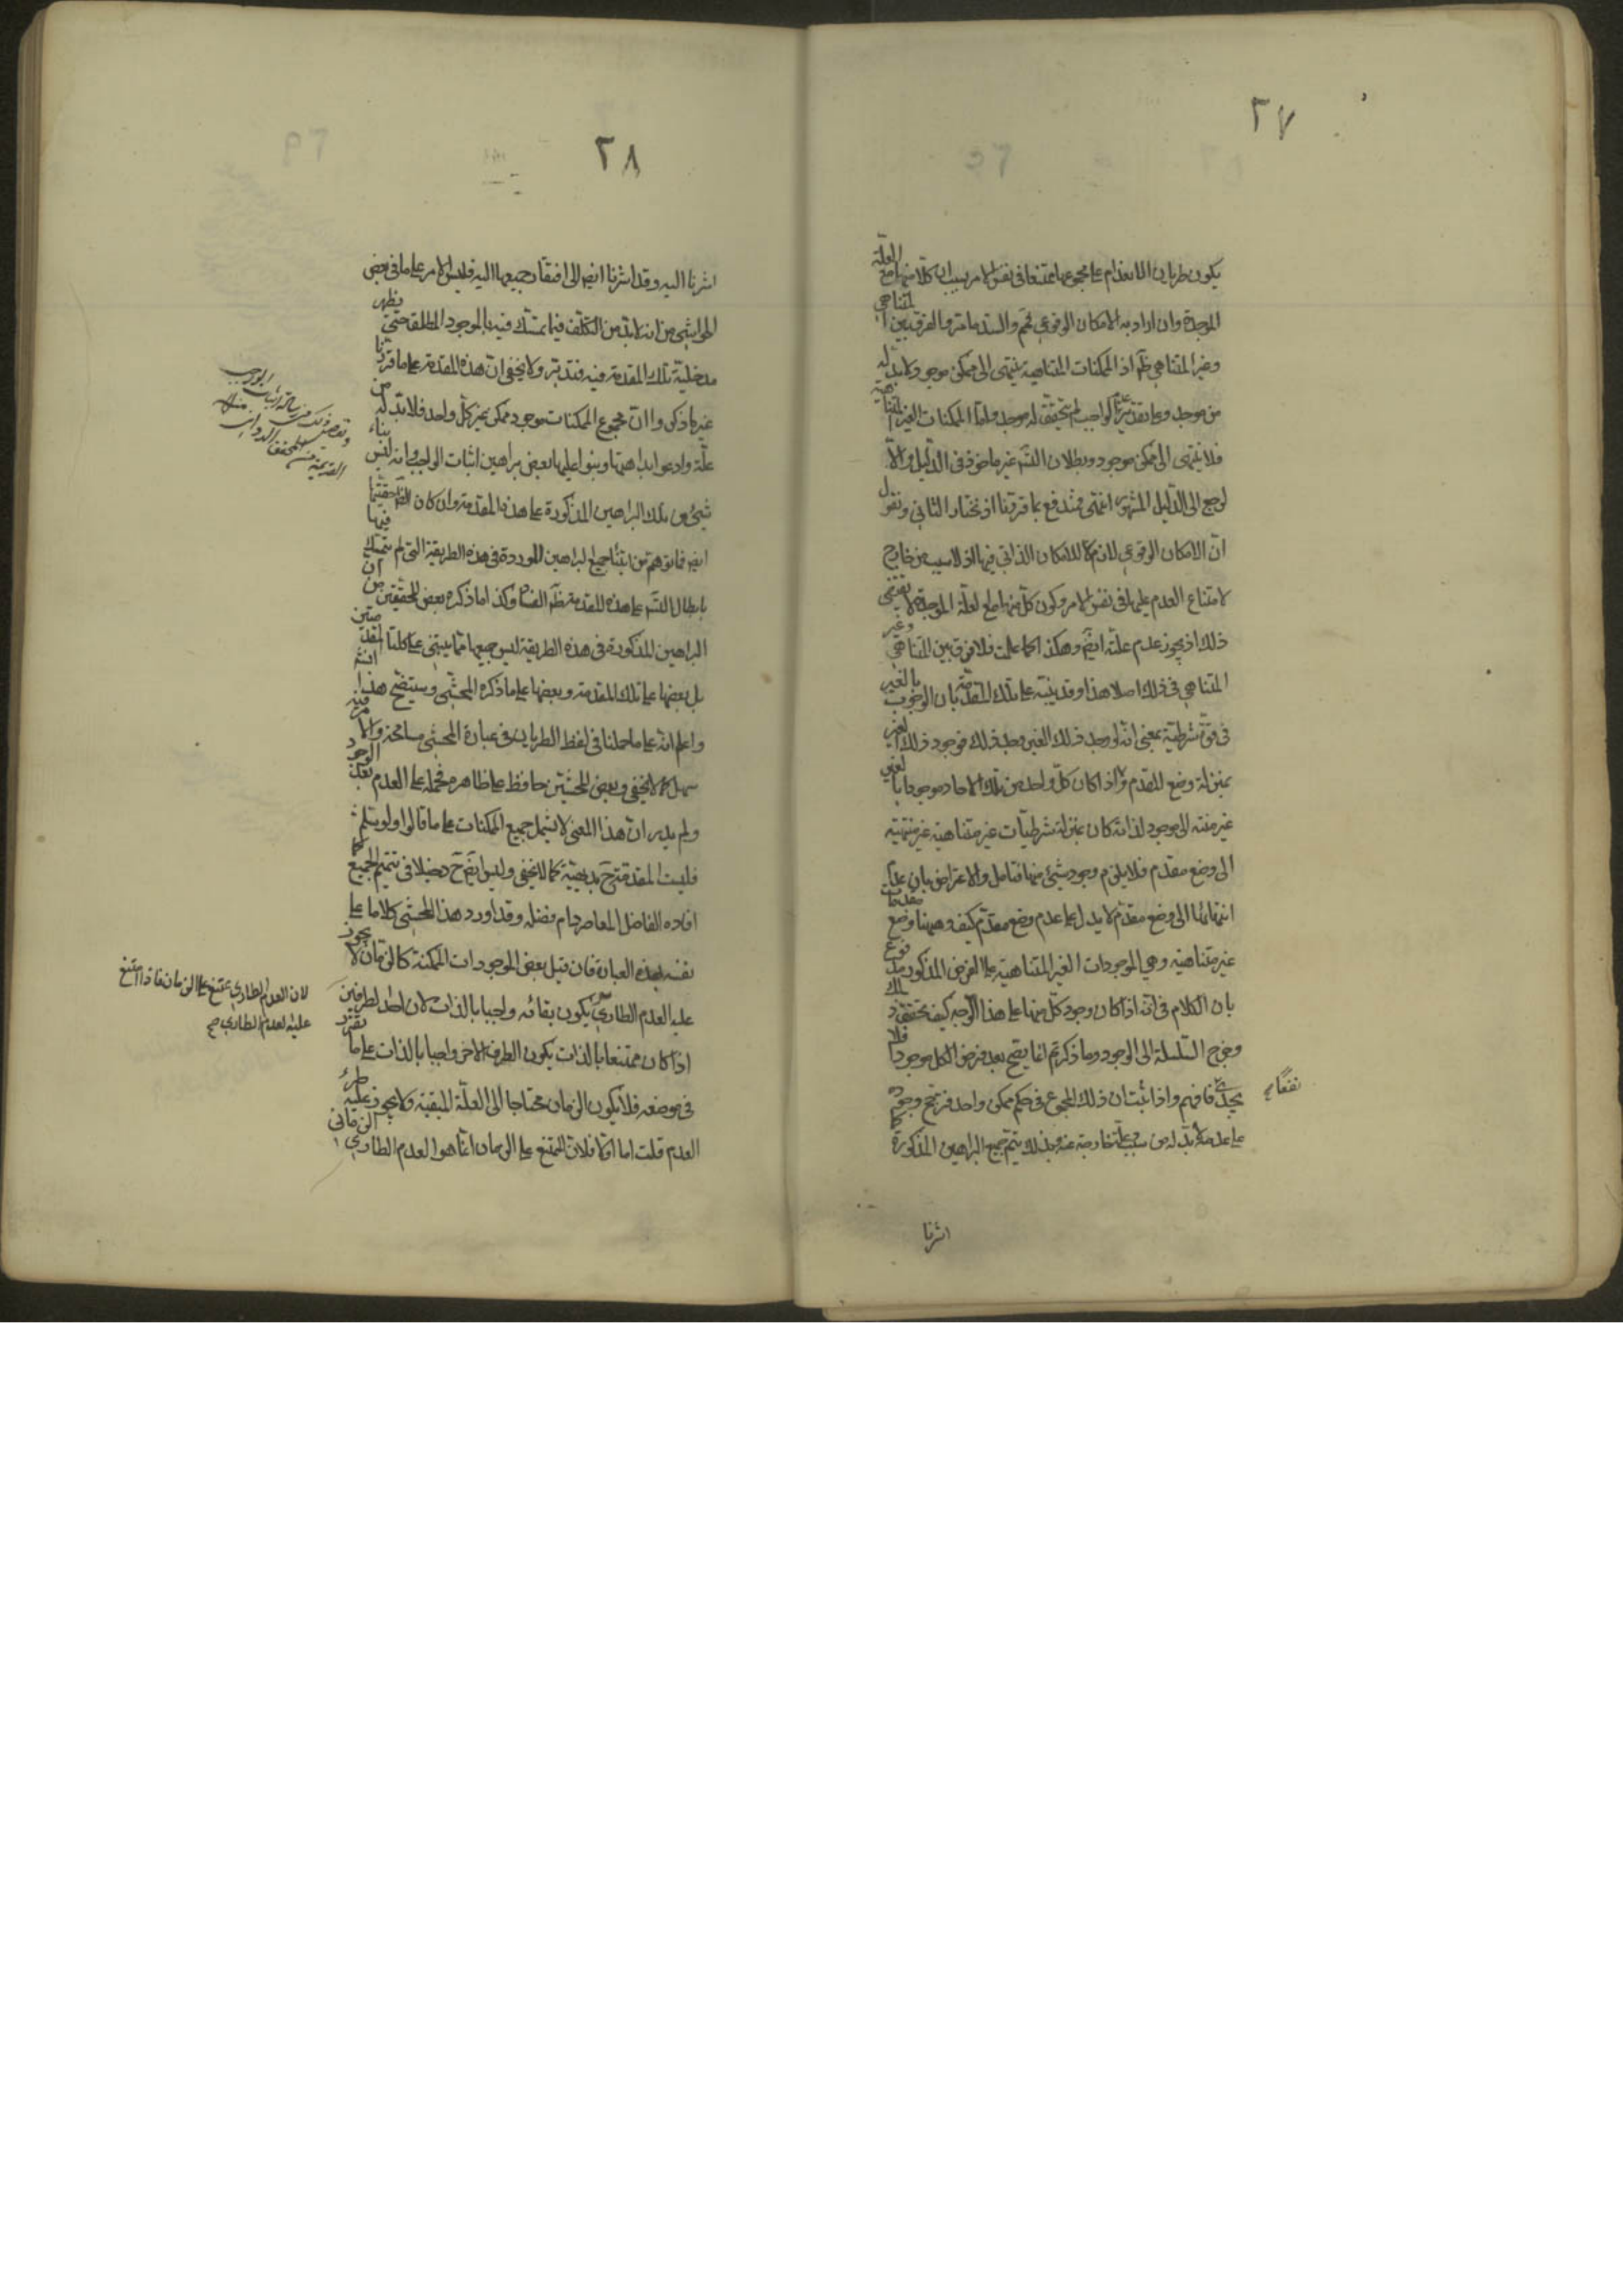 ٢٧
يكون طريان الانعدام على مجموعها ممتنعا في نفس الامر بسبب ان كلا منها مع العلة
الموجدة وان اراد به الامكان الوقوعي فمم والسند ما مر والفرق بين المتناهي
وغير المتناهي ظم اذ الممكنات المتناهية ينتهى الى ممكن موجود لابد له
من موجد وعلى تقدير عدم الواجب لم يتحقق له موجد واما الممكنات الغير المتناهية
فلا ينتهى الى ممكن موجود وبطلان التسم غير ماخوذ في الدليل والا
لرجع الى الدليل المشهور انتهى مندفع بما قررنا اذ نختار الثاني ونقول
ان الامكان الوقوعي لازم للامكان الذاتي فيها اذ لا سبب من خارج
لامتناع العدم عليها في نفس الامر وكون كل منها مع العلة الموجدة لا يقتضى
ذلك اذ يجوز عدم علته ايضم وهكذا كما علمت فلا فرق بين المتناهي وغير
المتناهي في ذلك اصلا هذا وقد ينبه على تلك المقدمة بان الوجوب بالغير
في قوة شرطية بمعنى انه لو وجد ذلك الغير وجد ذلك فوجود ذلك الغير
بمنزلة وضع المقدم واذا كان كل واحد من تلك الاحاد موجودا بالغير
غير منته الى موجود لذاته كان بمنزلة شرطيات غير متناهية غير منتهية
الى وضع مقدم فلا يلزم وجود شيئ منها فتامل والاعتراض بان عدم
انتهائها الى وضع مقدم لا يدل على عدم وضع مقدم كيف وههنا وضع مقدمات
غير متناهية وهي الموجودات الغير المتناهية على الفرض المذكور مدفوع
بان الكلام في انه اذا كان وجود كل منها على هذا الوجه كيف يتحقق تلك
وخرج السلسلة الى الوجود وما ذكرتم انما يصح بعد فرض الكل موجودا فلا
يجدى نفعًا صح فافهم واذا ثبت ان ذلك المجموع في حكم ممكن واحد فترجح وجوده
على عدمه لابد له من سبب وعلة خارجة عنه وبذلك يتم جميع البراهين المذكورة كما
اشرنا
٢٨
اشرنا اليه وقد اشرنا ايضم الى افتقار جميعها اليه فليس الامر على ما في بعض
الحواشي من انه لابد من التكلف فيما تمسك فيه بالموجود المطلق حتى يظهر
مدخلية تلك المقدمة فيه فتدبر ولا يخفى ان هذه المقدمة على ما قررنا
غير ما ذكروا ان مجموع الممكنات موجود ممكن بغير كل واحد فلابد له من
علة وادعوا بداهتها وبنوا عليها بعض براهين اثبات الواجب وانه ليس بناء
شيئ من تلك البراهين المذكورة على هذه المقدمة وان كان الظم حقيتها
ايضم فما توهم من ابتناء جميع البراهين الموردة في هذه الطريقة التي لم يتمسك فيها
بابطال التسم على هذه المقدمة ظم الفساد وكذا ما ذكره بعض المحققين من ان
البراهين المذكورة في هذه الطريقة ليس جميعها مما يبتنى على كلتا المقدمتين
بل بعضها على تلك المقدمة وبعضها على ما ذكره المحشى وسيتضح هذا انشم
واعلم انه على ما حملنا في لفظ الطريان في عبارة المحشى مسامحة والامر فيه
سهل كما لا يخفى وبعض المحشين حافظ على ظاهره فحمله على العدم بعد الوجود
ولم يدر ان هذا المعنى لا يشمل جميع الممكنات على ما قالوا ولو سلم
فليست المقدمة ح بديهية كما لا يخفى وليس ايضم ح دخيلا في تتميم الجميع كما
افاده الفاضل المعاصر دام فضله وقد اورد هذا المحشى كلاما على
نفسه بهذه العبارة فان قيل بعض الموجودات الممكنة كالزمان لا يجوز
عليه العدم الطاري يكون بقائه واجبا بالذات لان احد الطرفين
اذا كان ممتنعا بالذات يكون الطرف الاخر واجبا بالذات على ما تقرر
في موضعه فلا يكون الزمان محتاجا الى العلة المبقية ولا يجوز عليه طرء
العدم قلت اما اولا فلان الممتنع على الزمان انما هو العدم الطاري الزماني
لان العدم الطاري ممتنع على الزمان فاذا امتنع
عليه العدم الطاري صح